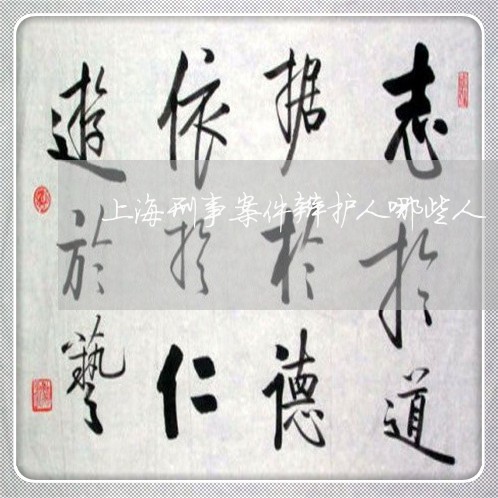 志於道
据於德
依於仁
遊於藝
上海刑事案件辩护人哪些人